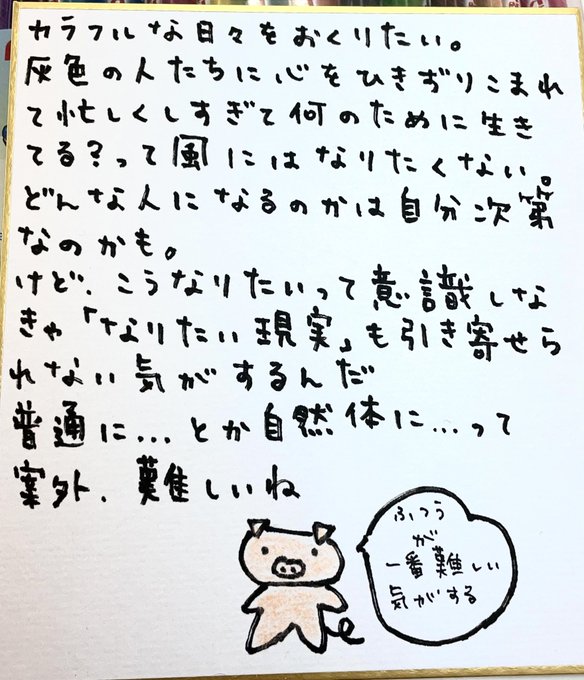 カラフルな日々をおくりたい。
灰色の人たちに心をひきずりこまれ
て忙しくしすぎて何のために生き
てる？って風にはなりたくない。
どんな人になるのかは自分次第
なのかも。
けど、こうなりたいって意識しな
きゃ「なりたい現実」も引き寄せら
れない気がするんだ
普通に…とか自然体に…って
案外、難しいね
ふつう
が
一番難しい
気がする